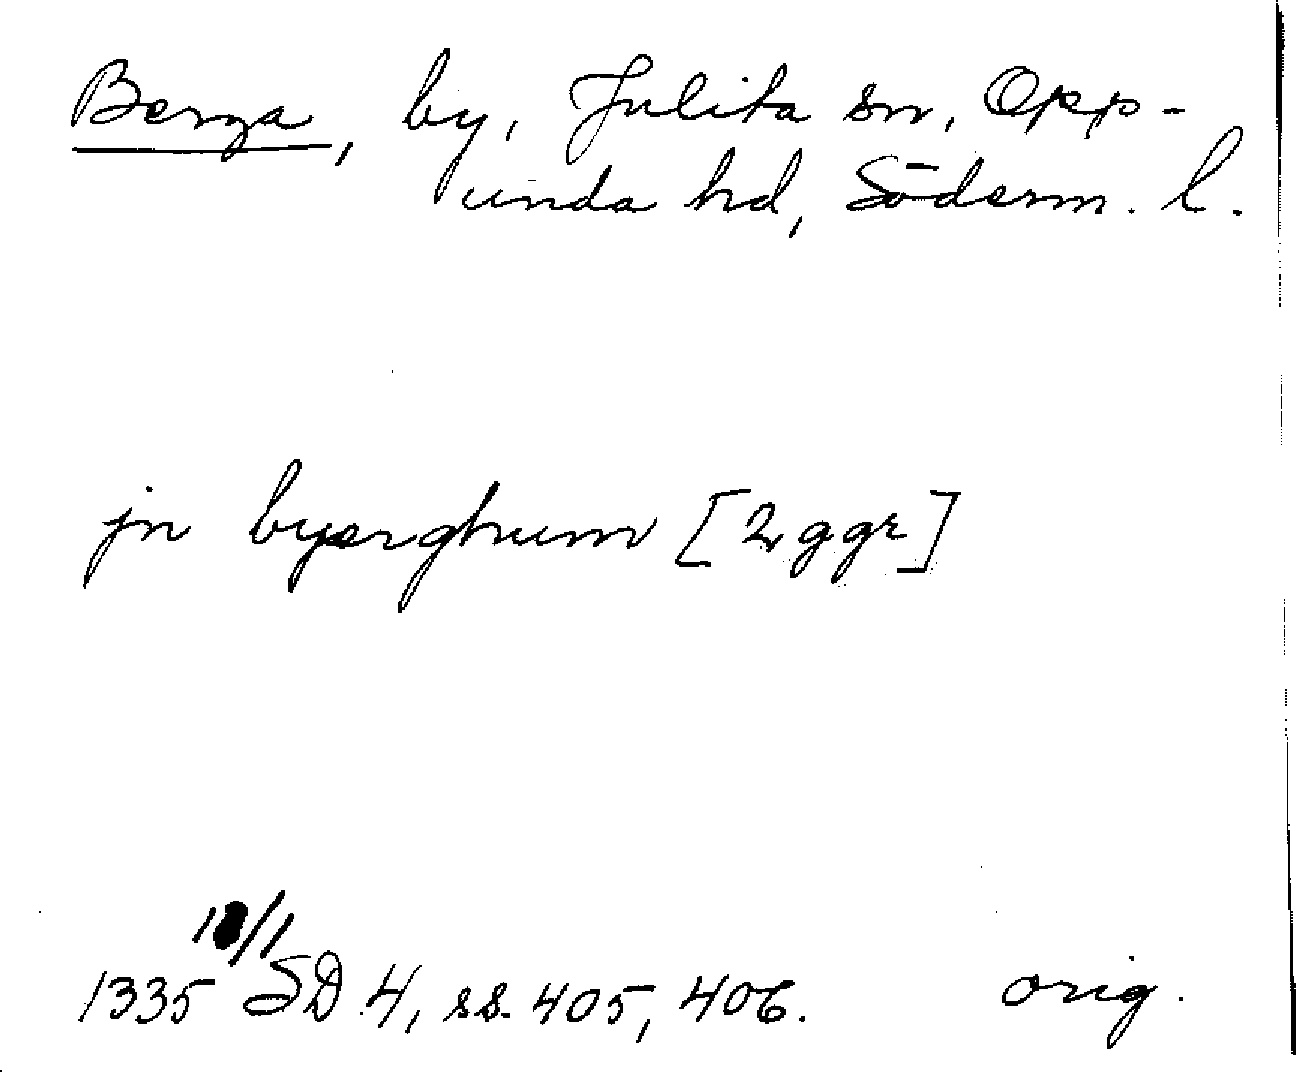 Berga, by, Julita sn, Opp-
unda hd, Söderm. l.
jn byerghum [2 ggr]
1335 SD 4, ss. 405, 406. orig.